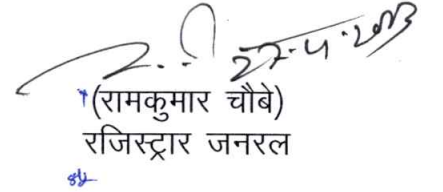 27.4.2013
(रामकुमार चौबे)
रजिस्ट्रार जनरल